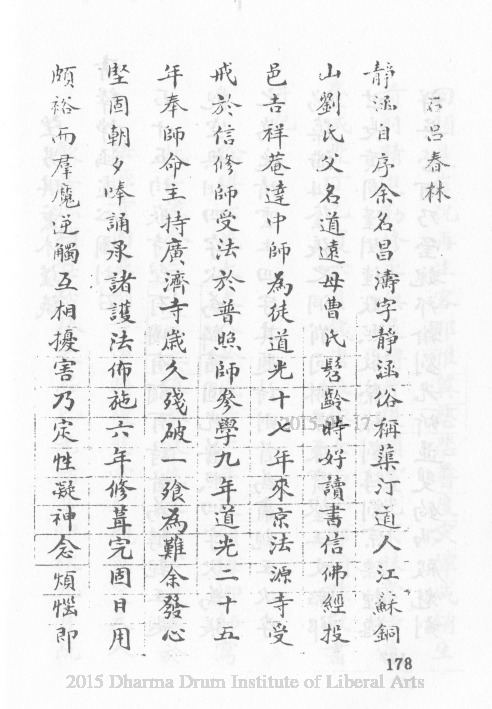 呂春林
靜涵自序余名昌濤字靜涵俗稱蕖汀道人江蘇銅
山劉氏父名道遠母曹氏髫齡時好讀書信佛經投
邑吉祥菴達中師為徒道光十七年來京法源寺受
戒於信修師受法於普照師參學九年道光二十五
年奉師命主持廣濟寺歲久殘破一飱為難余發心
堅固朝夕唪誦承諸護法佈施六年修葺完固日用
頗裕而羣魔逆觸互相擾害乃定性凝神念煩惱即
178
2015 Dharma Drum Institute of Liberal Arts